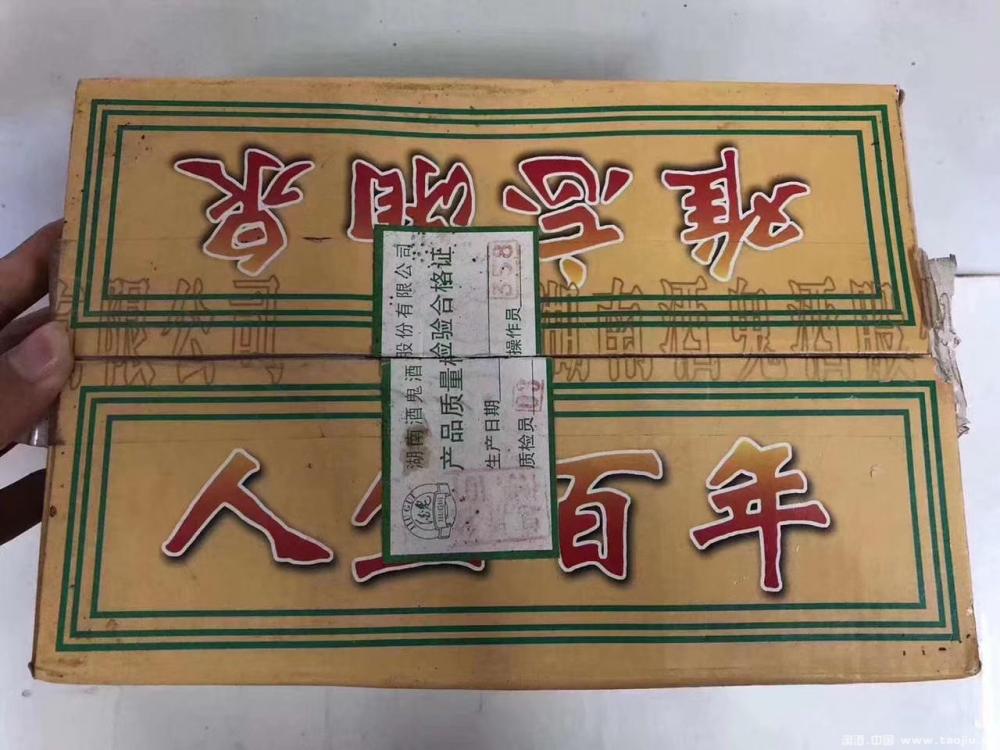 难忘湘泉
人生百年
湖南酒鬼酒股份有限公司
产品质量检验合格证
生产日期
质检员 03 操作员 358
JIU GUI
酒鬼
南酒鬼酒股
限公司
淘酒.中国 www.taojiu